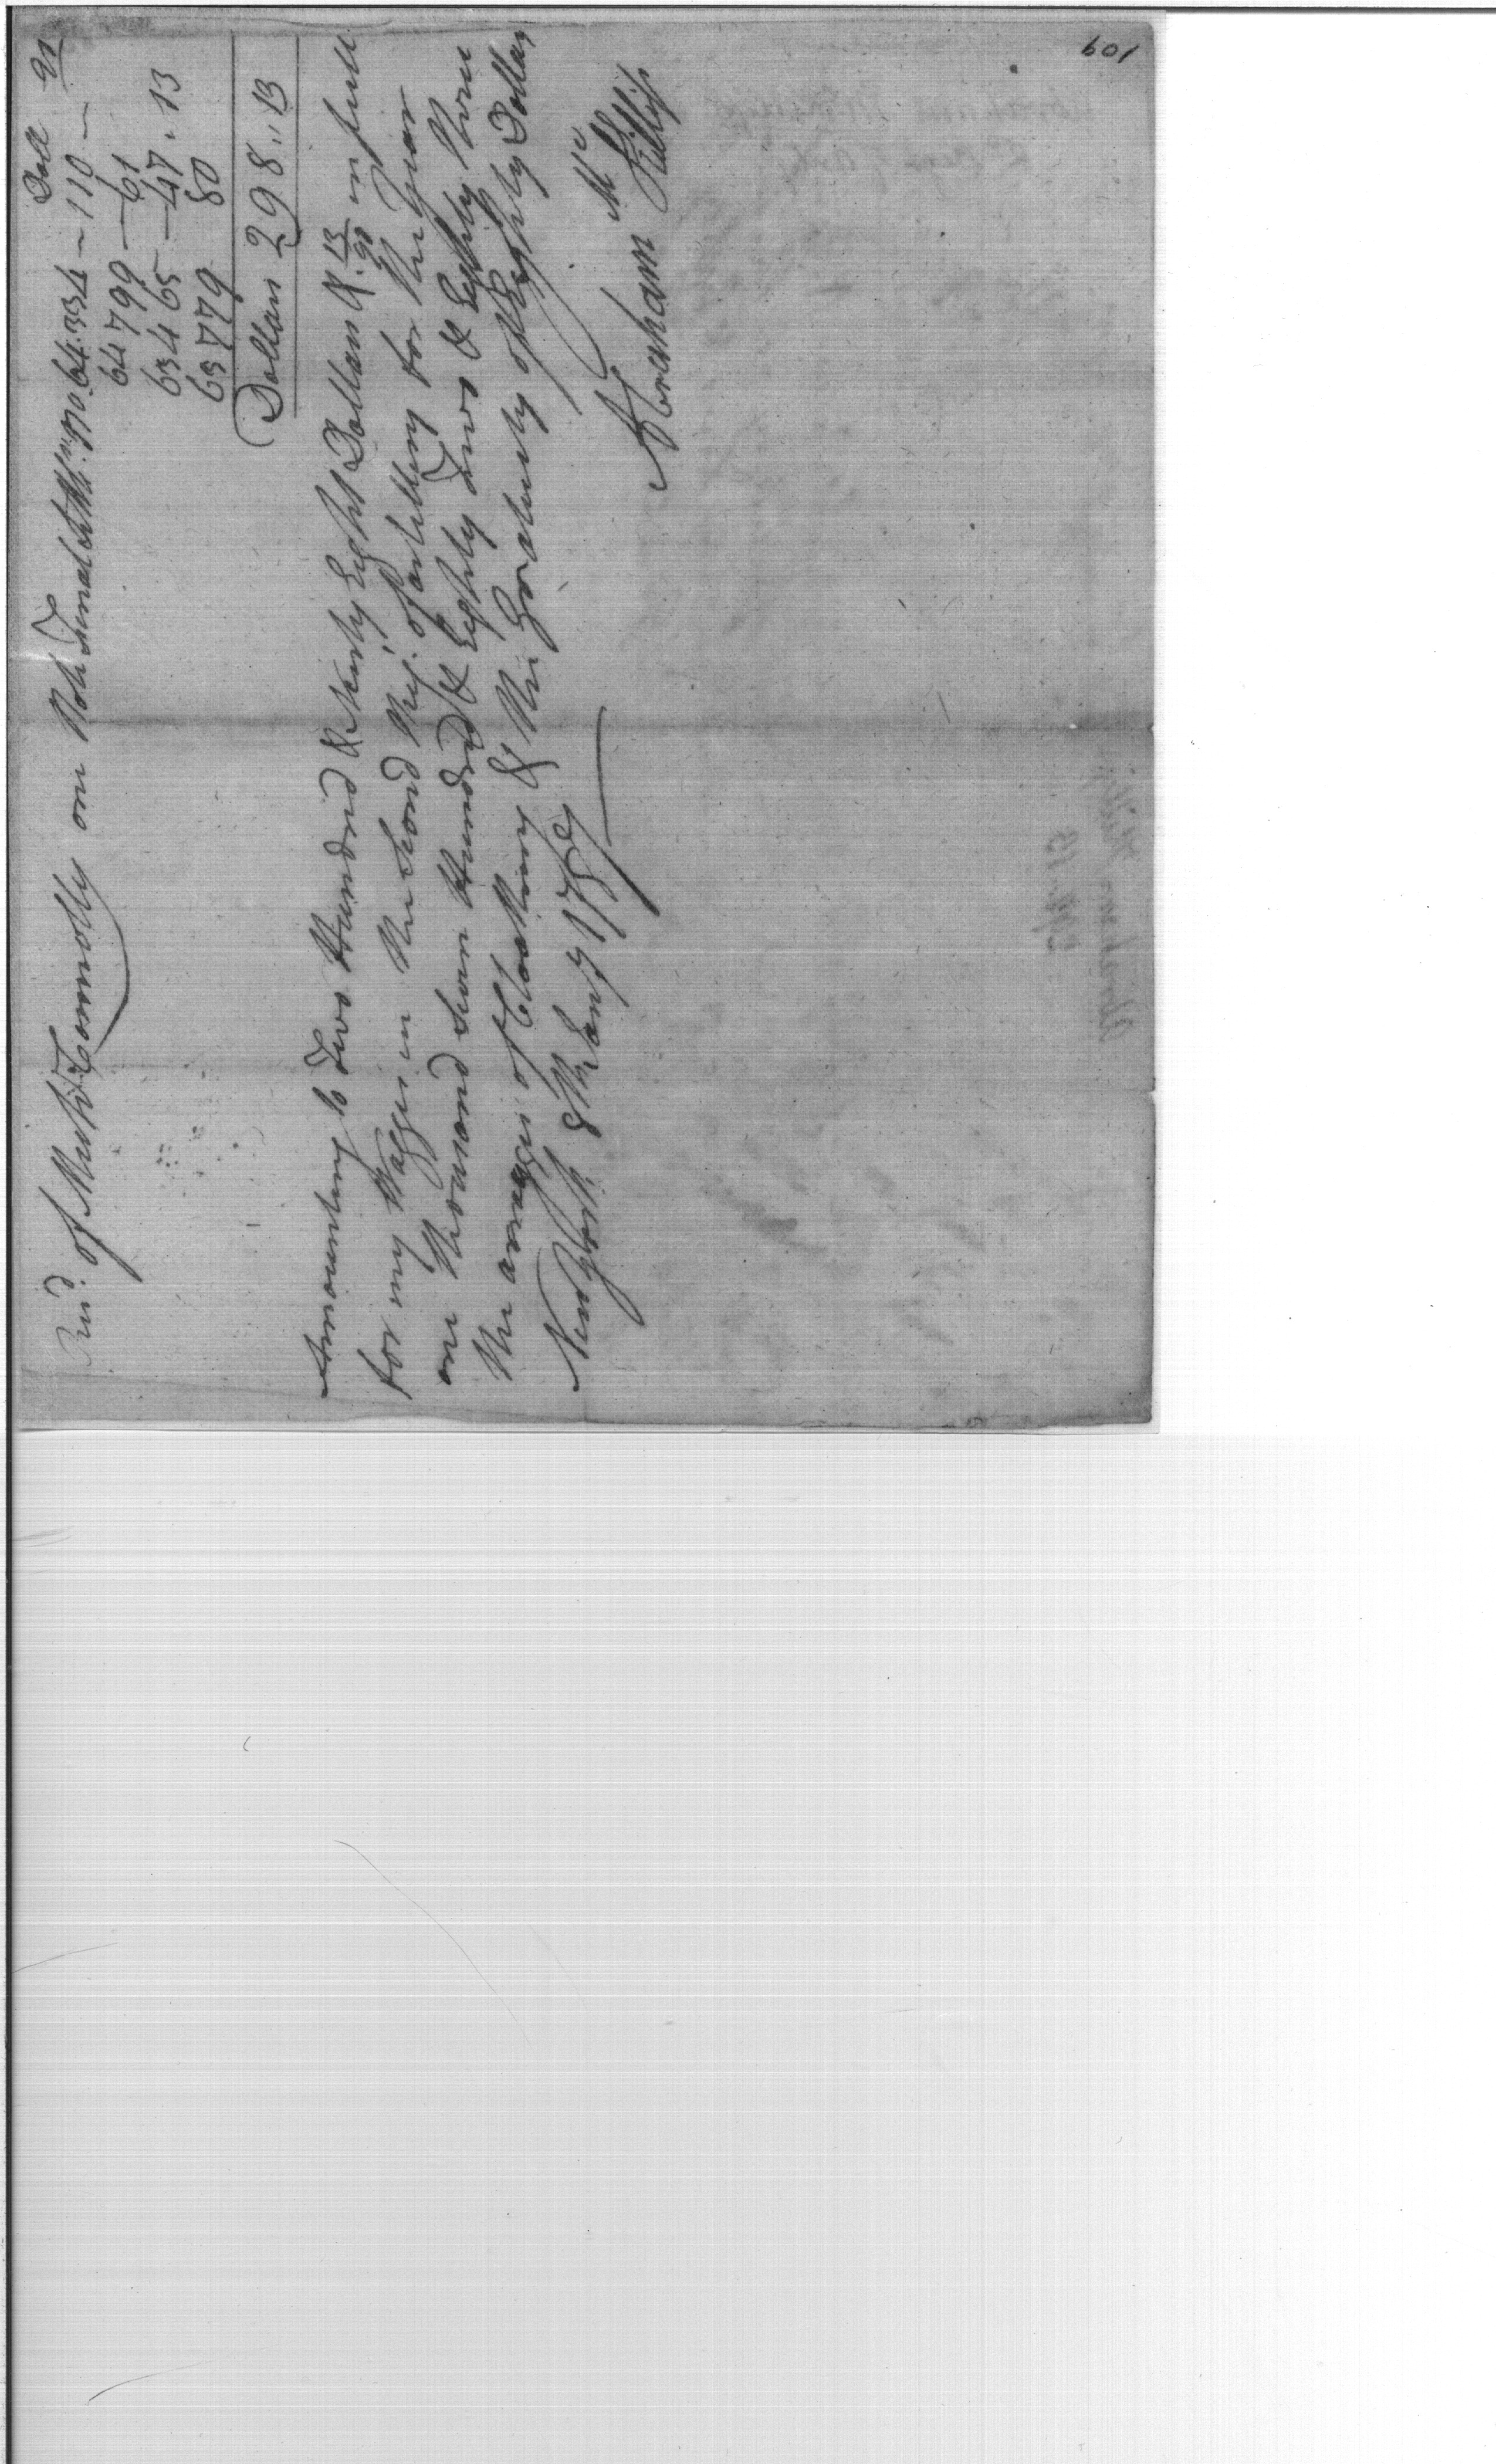 Recd. of Mich Connolly one Note Final Settt. No. 64.334 – 110 –
Doll 90
64 799 – 61
63465 – 47 . 13
63779 80
Dollars 298 .. 13
amounting to Two Hundred & Ninty Eight Dollars & 13/90 in full
for my Wages in the Second Regt. of artillery for the Year
one thousand Seven Hundred & Eighty Two & Eighty Three
the arrages of Cloathing & the Gratuity of Eighty Dollars
New York 8th Jany 178
Abraham Mc Killips
109